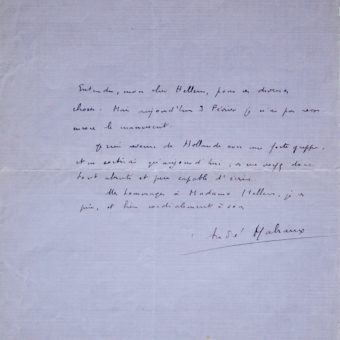 Entendu, mon cher Hellens, pour ces diverses
choses. Mais aujourd'hui 3 Février je n'ai pas reçu
encore le manuscrit.
revenu de Hollande avec une forte grippe,
et ne qu'aujourd'hui,
tout et peu capable d'écrire.
Mes hommages à Madame Hellens, je
prie, et bien cordialement à vous
André Malraux